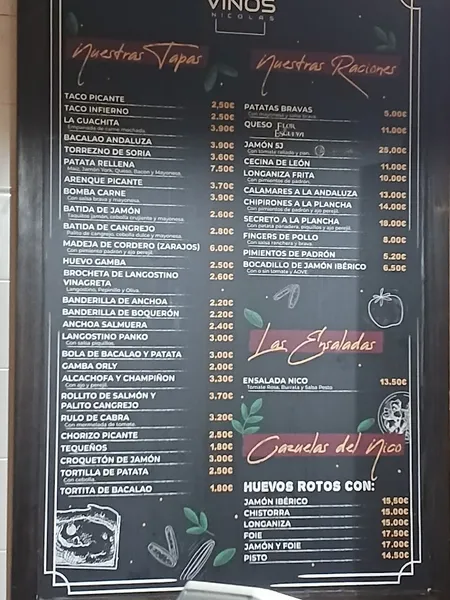 VINOS
NICOLAS
Nuestras Tapas
TACO PICANTE 2,50€
TACO INFIERNO 2.50€
LA GUACHITA 3.90€
Empanada de carne mechada.
BACALAO ANDALUZA 3.90€
TORREZNO DE SORIA 3.60€
PATATA RELLENA 7.50€
Maiz, Jamón York, Queso, Bacon y Mayonesa.
ARENQUE PICANTE 3.70€
BOMBA CARNE 3.90€
Con salsa brava y mayonesa.
BATIDA DE JAMÓN 2.60€
Taquitos jamón, cebolla crujiente y mayonesa.
BATIDA DE CANGREJO 2.80€
Palito de cangrejo, cebolla dulce y mayonesa.
MADEJA DE CORDERO (ZARAJOS) 6.00€
Con pimiento padrón y aje perejil.
HUEVO GAMBA 2.50€
BROCHETA DE LANGOSTINO
VINAGRETA 2.60€
Langostino, Pepinillo y Oliva.
BANDERILLA DE ANCHOA 2.20€
BANDERILLA DE BOQUERÓN 2.20€
ANCHOA SALMUERA 2.40€
LANGOSTINO PANKO 3.00€
Con salsa piquillos.
BOLA DE BACALAO Y PATATA 3.00€
GAMBA ORLY 2.00€
ALCACHOFA Y CHAMPIÑON 3.30€
Con ajo y perejil.
ROLLITO DE SALMÓN Y
PALITO CANGREJO 3.70€
RULO DE CABRA 3.20€
Con mermelada de tomate.
CHORIZO PICANTE 2.50€
TEQUEÑOS 1.80€
CROQUETÓN DE JAMÓN 3.00€
TORTILLA DE PATATA 2.50€
Con cebolla.
TORTITA DE BACALAO 1.80€
Nuestras Raciones
PATATAS BRAVAS 5.00€
Con mayonesa y salsa brava.
QUESO FLOR ESGUEVA 11.00€
JAMÓN 5J 25,00€
Con tomate rallado y pan.
CECINA DE LEÓN 11.00€
LONGANIZA FRITA 10.00€
Con pimientos de padrón.
CALAMARES A LA ANDALUZA 13.00€
CHIPIRONES A LA PLANCHA 14.00€
Con pimientos de padrón y ajo perejil.
SECRETO A LA PLANCHA 18.00€
Con patata panadera, piquillos y ajo perejil.
FINGERS DE POLLO 8.00€
Con salsa ranchera y brava.
PIMIENTOS DE PADRÓN 5.20€
BOCADILLO DE JAMÓN IBÉRICO 6.50€
Con o sin tomate y AOVE.
Las Ensaladas
ENSALADA NICO 13.50€
Tomate Rosa, Burrata y Salsa Pesto
Cazuelas del Nico
HUEVOS ROTOS CON:
JAMÓN IBÉRICO 15,50€
CHISTORRA 15.00€
LONGANIZA 15.00€
FOIE 17.50€
JAMÓN Y FOIE 17.00€
PISTO 14.50€